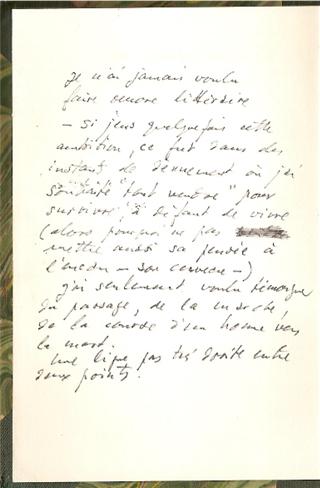 Je n'ai jamais voulu
faire œuvre littéraire
— si j'eus quelquefois cette
ambition, ce fut dans des
instants de dénuement où j'ai
souhaité "tout vendre" pour
survivre, à défaut de vivre
(alors pourquoi ne pas
mettre aussi sa pensée à
l'encan — son cerveau —)
J'ai seulement voulu témoigner
du passage, de la marche
de la course d'un homme vers
la mort.
Une ligne pas très droite entre
deux points.